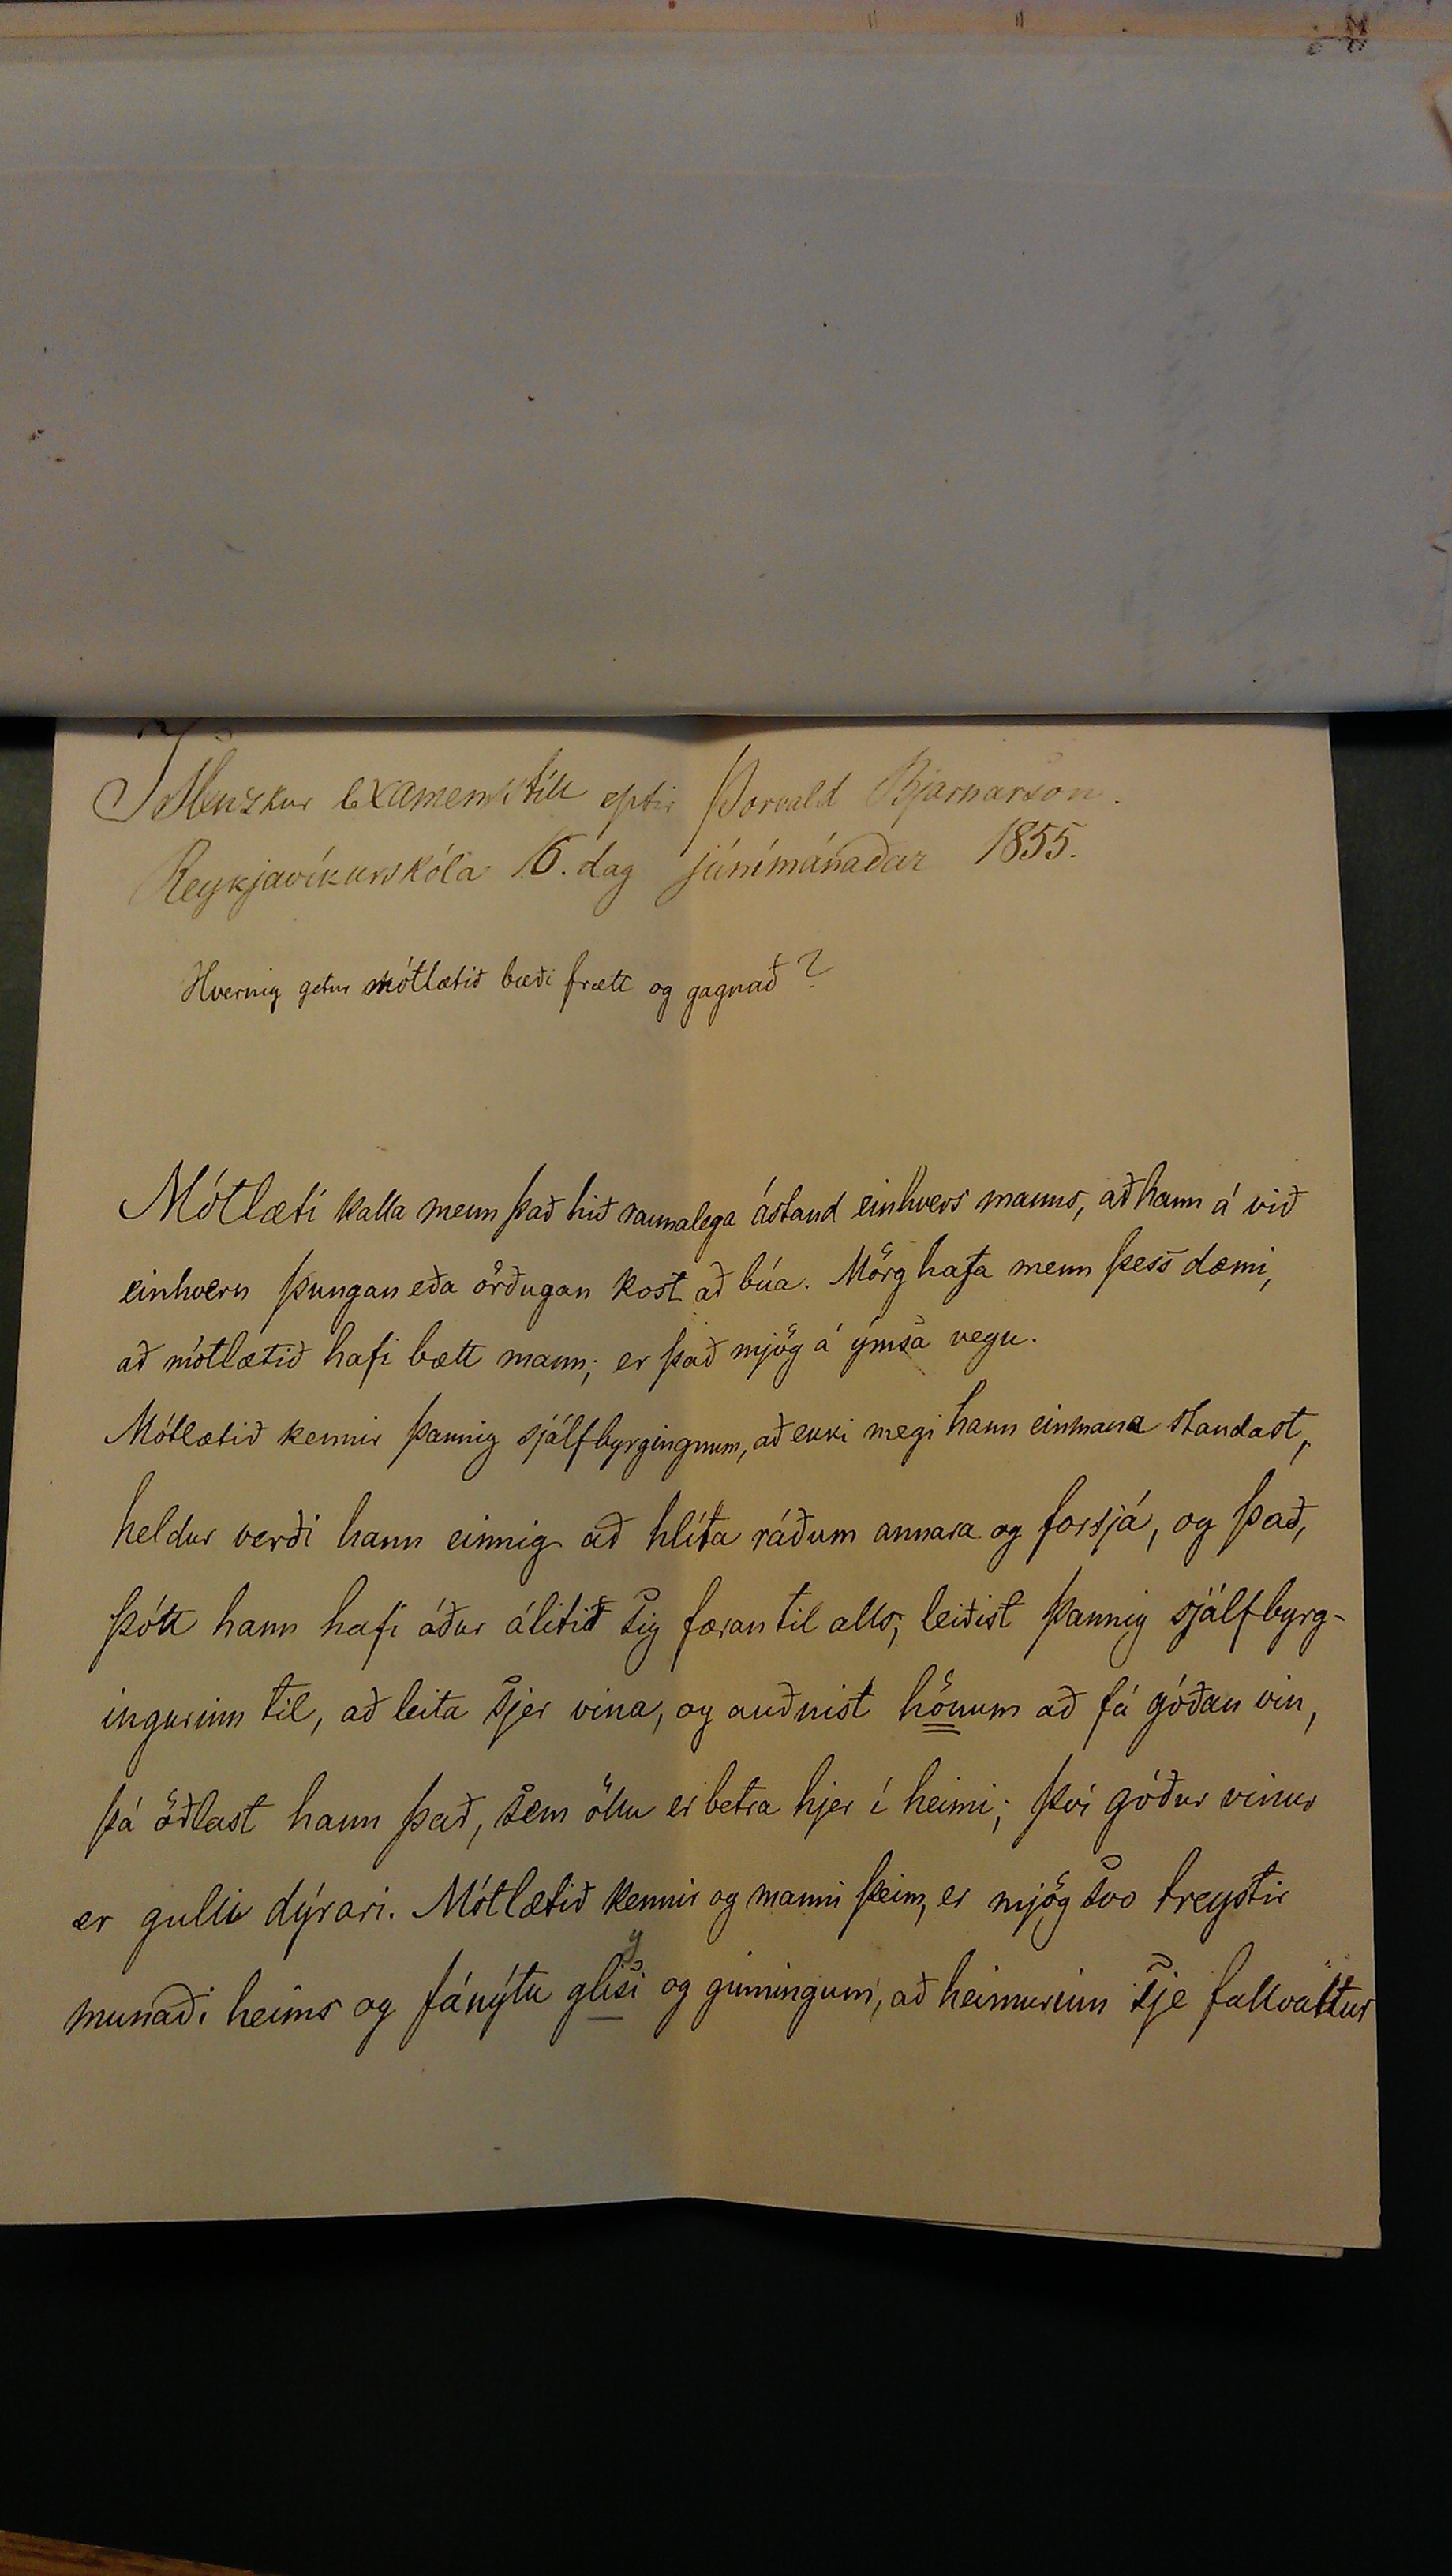 Íslenzkur examensstíll eptir Þorvald Bjarnarson.
Reykjavíkurskóla 15. dag júnímánaðar 1855.
Hvernig getur mótlætið bæði frætt og gagnað?
Mótlæti kalla menn það hið raunalega ástand einhvers manns, að hann á við
einhvern þungan eða örðugan kost að búa. Mörg hafa menn þess dæmi,
að mótlætið hafi bætt mann; er það mjög á ýmsa vegu.
Mótlætið kennir þannig sjálfbyrgingnum, að ekki megi hann einmana standast,
heldur verði hann einnig að hlíta ráðum annara og forsjá, og það,
þótt hann hafi áður álitið sig færan til alls; leiðist þannig sjálfbyrg-
ingurinn til, að leita sjer vina, og auðnist hönum að fá góðan vin,
þá öðlast hann það, sem öllu er betra hjer í heimi; því góður vinur
er gulli dýrari. Mótlætið kennir og manni þeim, er mjög svo treystir
munaði heims og fánýtu glisi og ginningum, að heimurinn sje fallvaltur